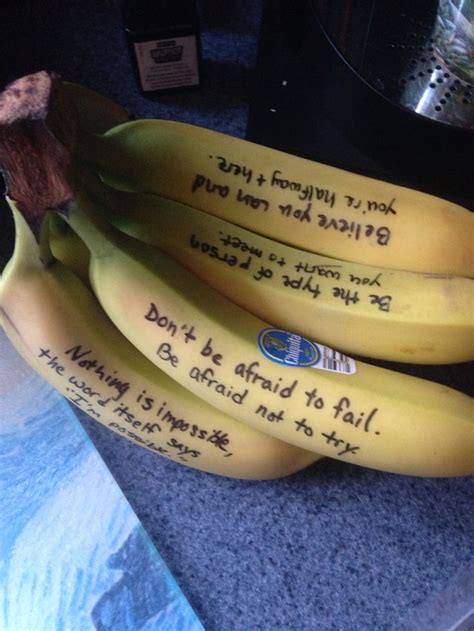 Believe you can and
you're halfway there.
Be the type of person
you want to meet.
Don't be afraid to fail.
Be afraid not to try.
Chiquita
Nothing is impossible,
the word itself says
"I'm possible."